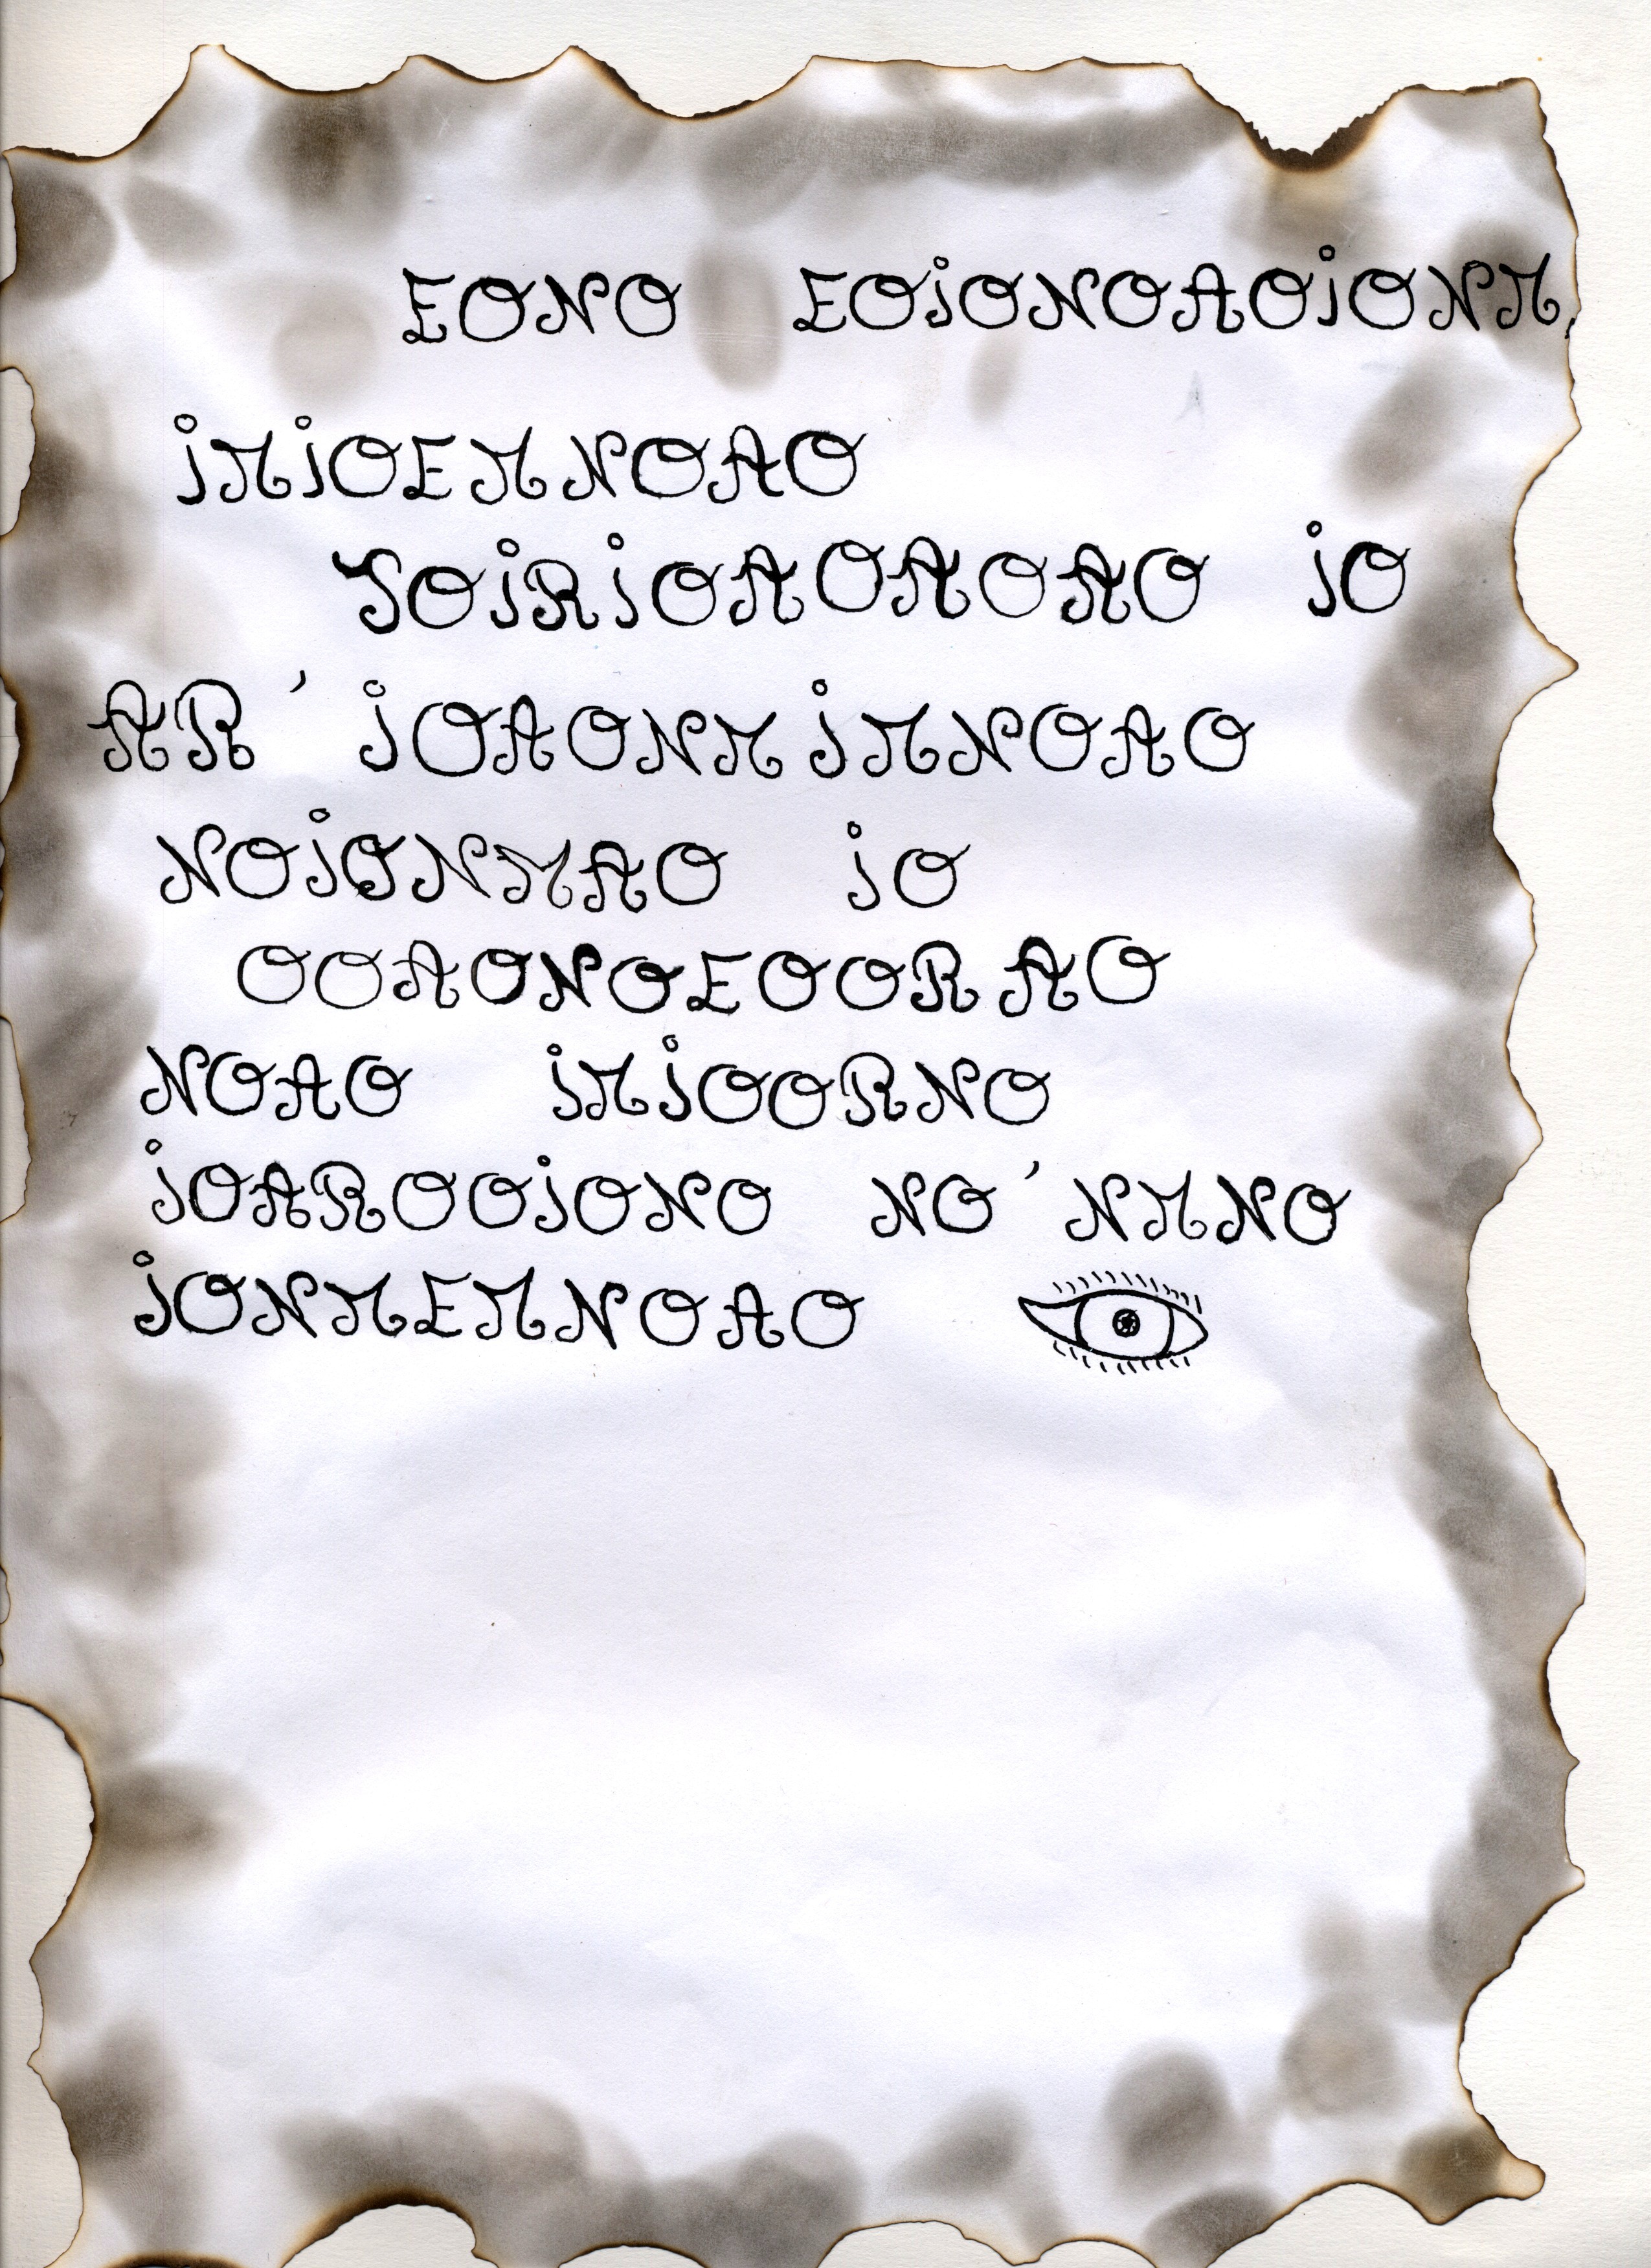 EONO EOiONOAOiONM,
iMiOEMNOAO
SOiRiOAOAOAO iO
AR ' iOAONMiMNOAO
NOiONMAO iO
OOAONOEOORAO
NOAO iMiOORNO
iOAROOiONO NO'NMNO
iONMEMNOAO